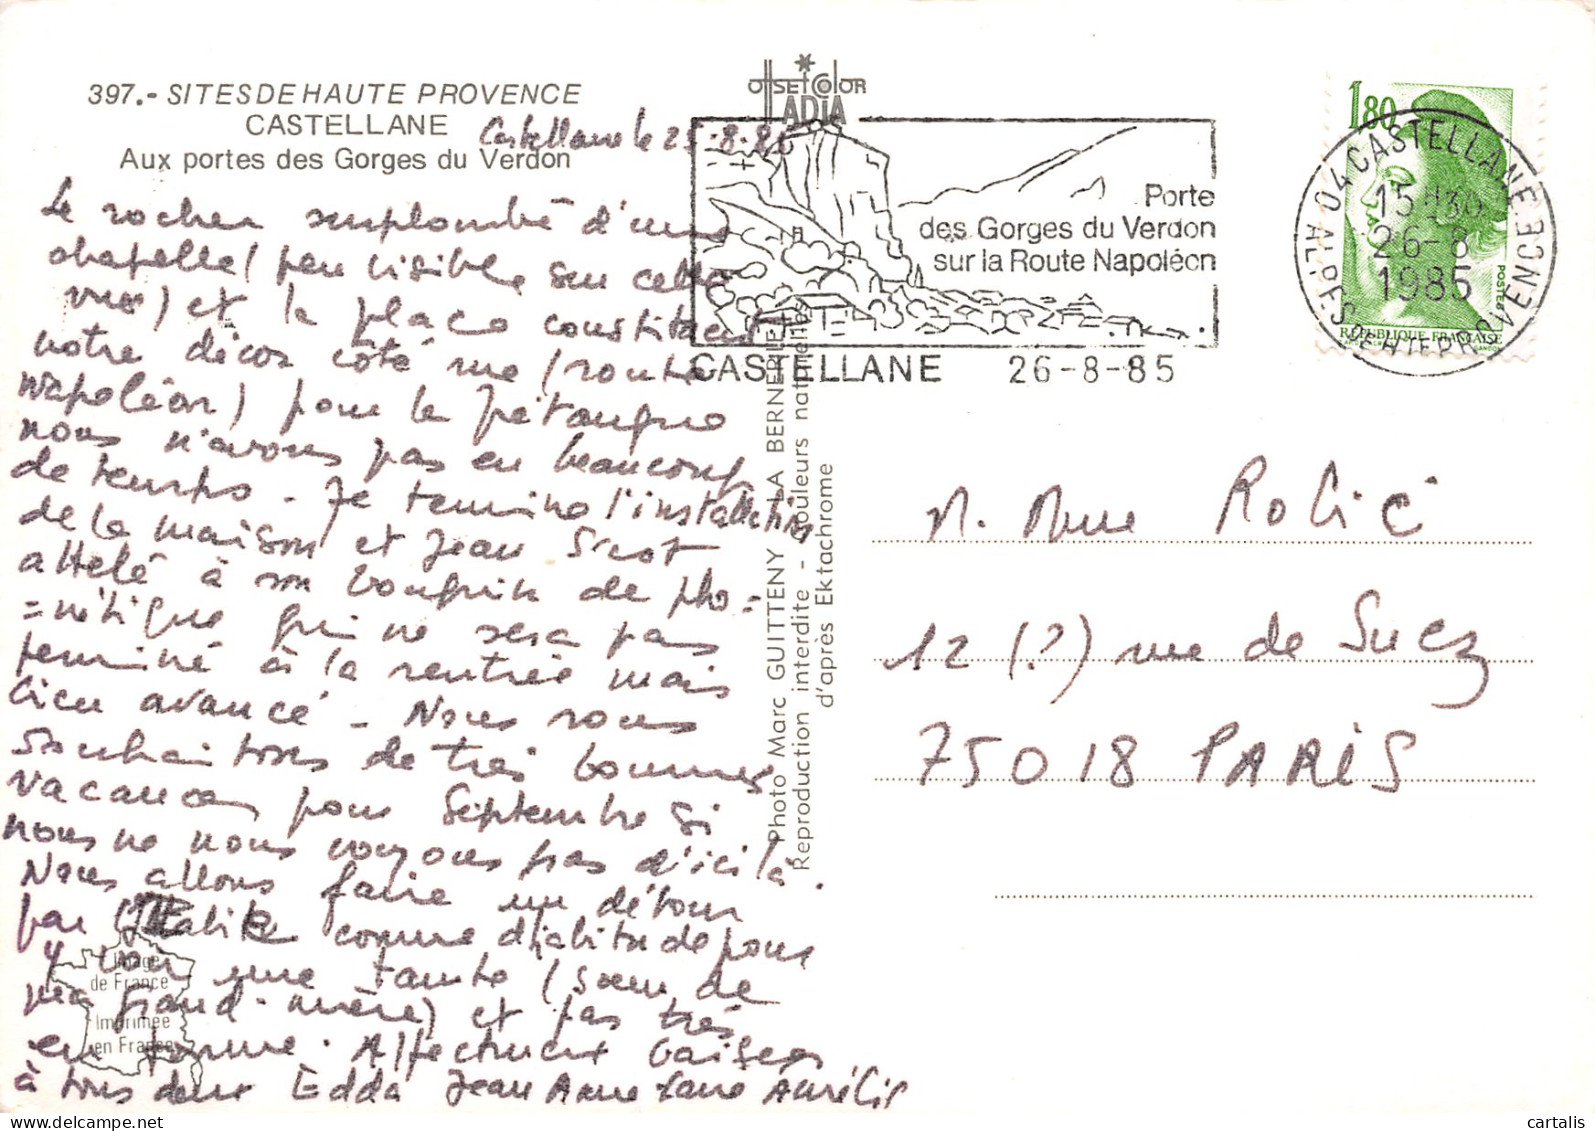 397.- SITES DE HAUTE PROVENCE
CASTELLANE
Aux portes des Gorges du Verdon
Castellane le 25-8-85
Le rocher surplombé d'une
chapelle (peu visible sur cette
vue) et la place constituent
notre décor côté rue (route
Napoléon) pour la pétanque
nous n'avons pas eu beaucoup
de temps - Je termine l'installation
de la maison et Jean s'est
attelé à son bouquin de pho-
=nétique qui ne sera pas
terminé à la rentrée mais
bien avancé - Nous vous
souhaitons de très bonnes
vacances pour Septembre si
nous ne nous voyons pas d'ici là.
Nous allons faire un détour
par l'Italie comme d'habitude pour
y voir une tante (sœur de
ma grand-mère) et pas très
en forme. Affectueux baisers
à tous deux Edda Jean Anne
OFFSET COLOR
ADIA
Porte
des Gorges du Verdon
sur la Route Napoléon
CASTELLANE 26-8-85
1,80
POSTES
RÉPUBLIQUE FRANÇAISE
GANDON
04 CASTELLANE
15H30
26-8
1985
ALPES DE HTE PROVENCE
Photo Marc GUITTENY LA BERNERIE
Reproduction interdite - Couleurs naturelles
d'après Ektachrome
M. Mme Rolić
12 (?) rue de Suez
75018 PARIS
Image
de France
Imprimée
en France
www.cartalis.com